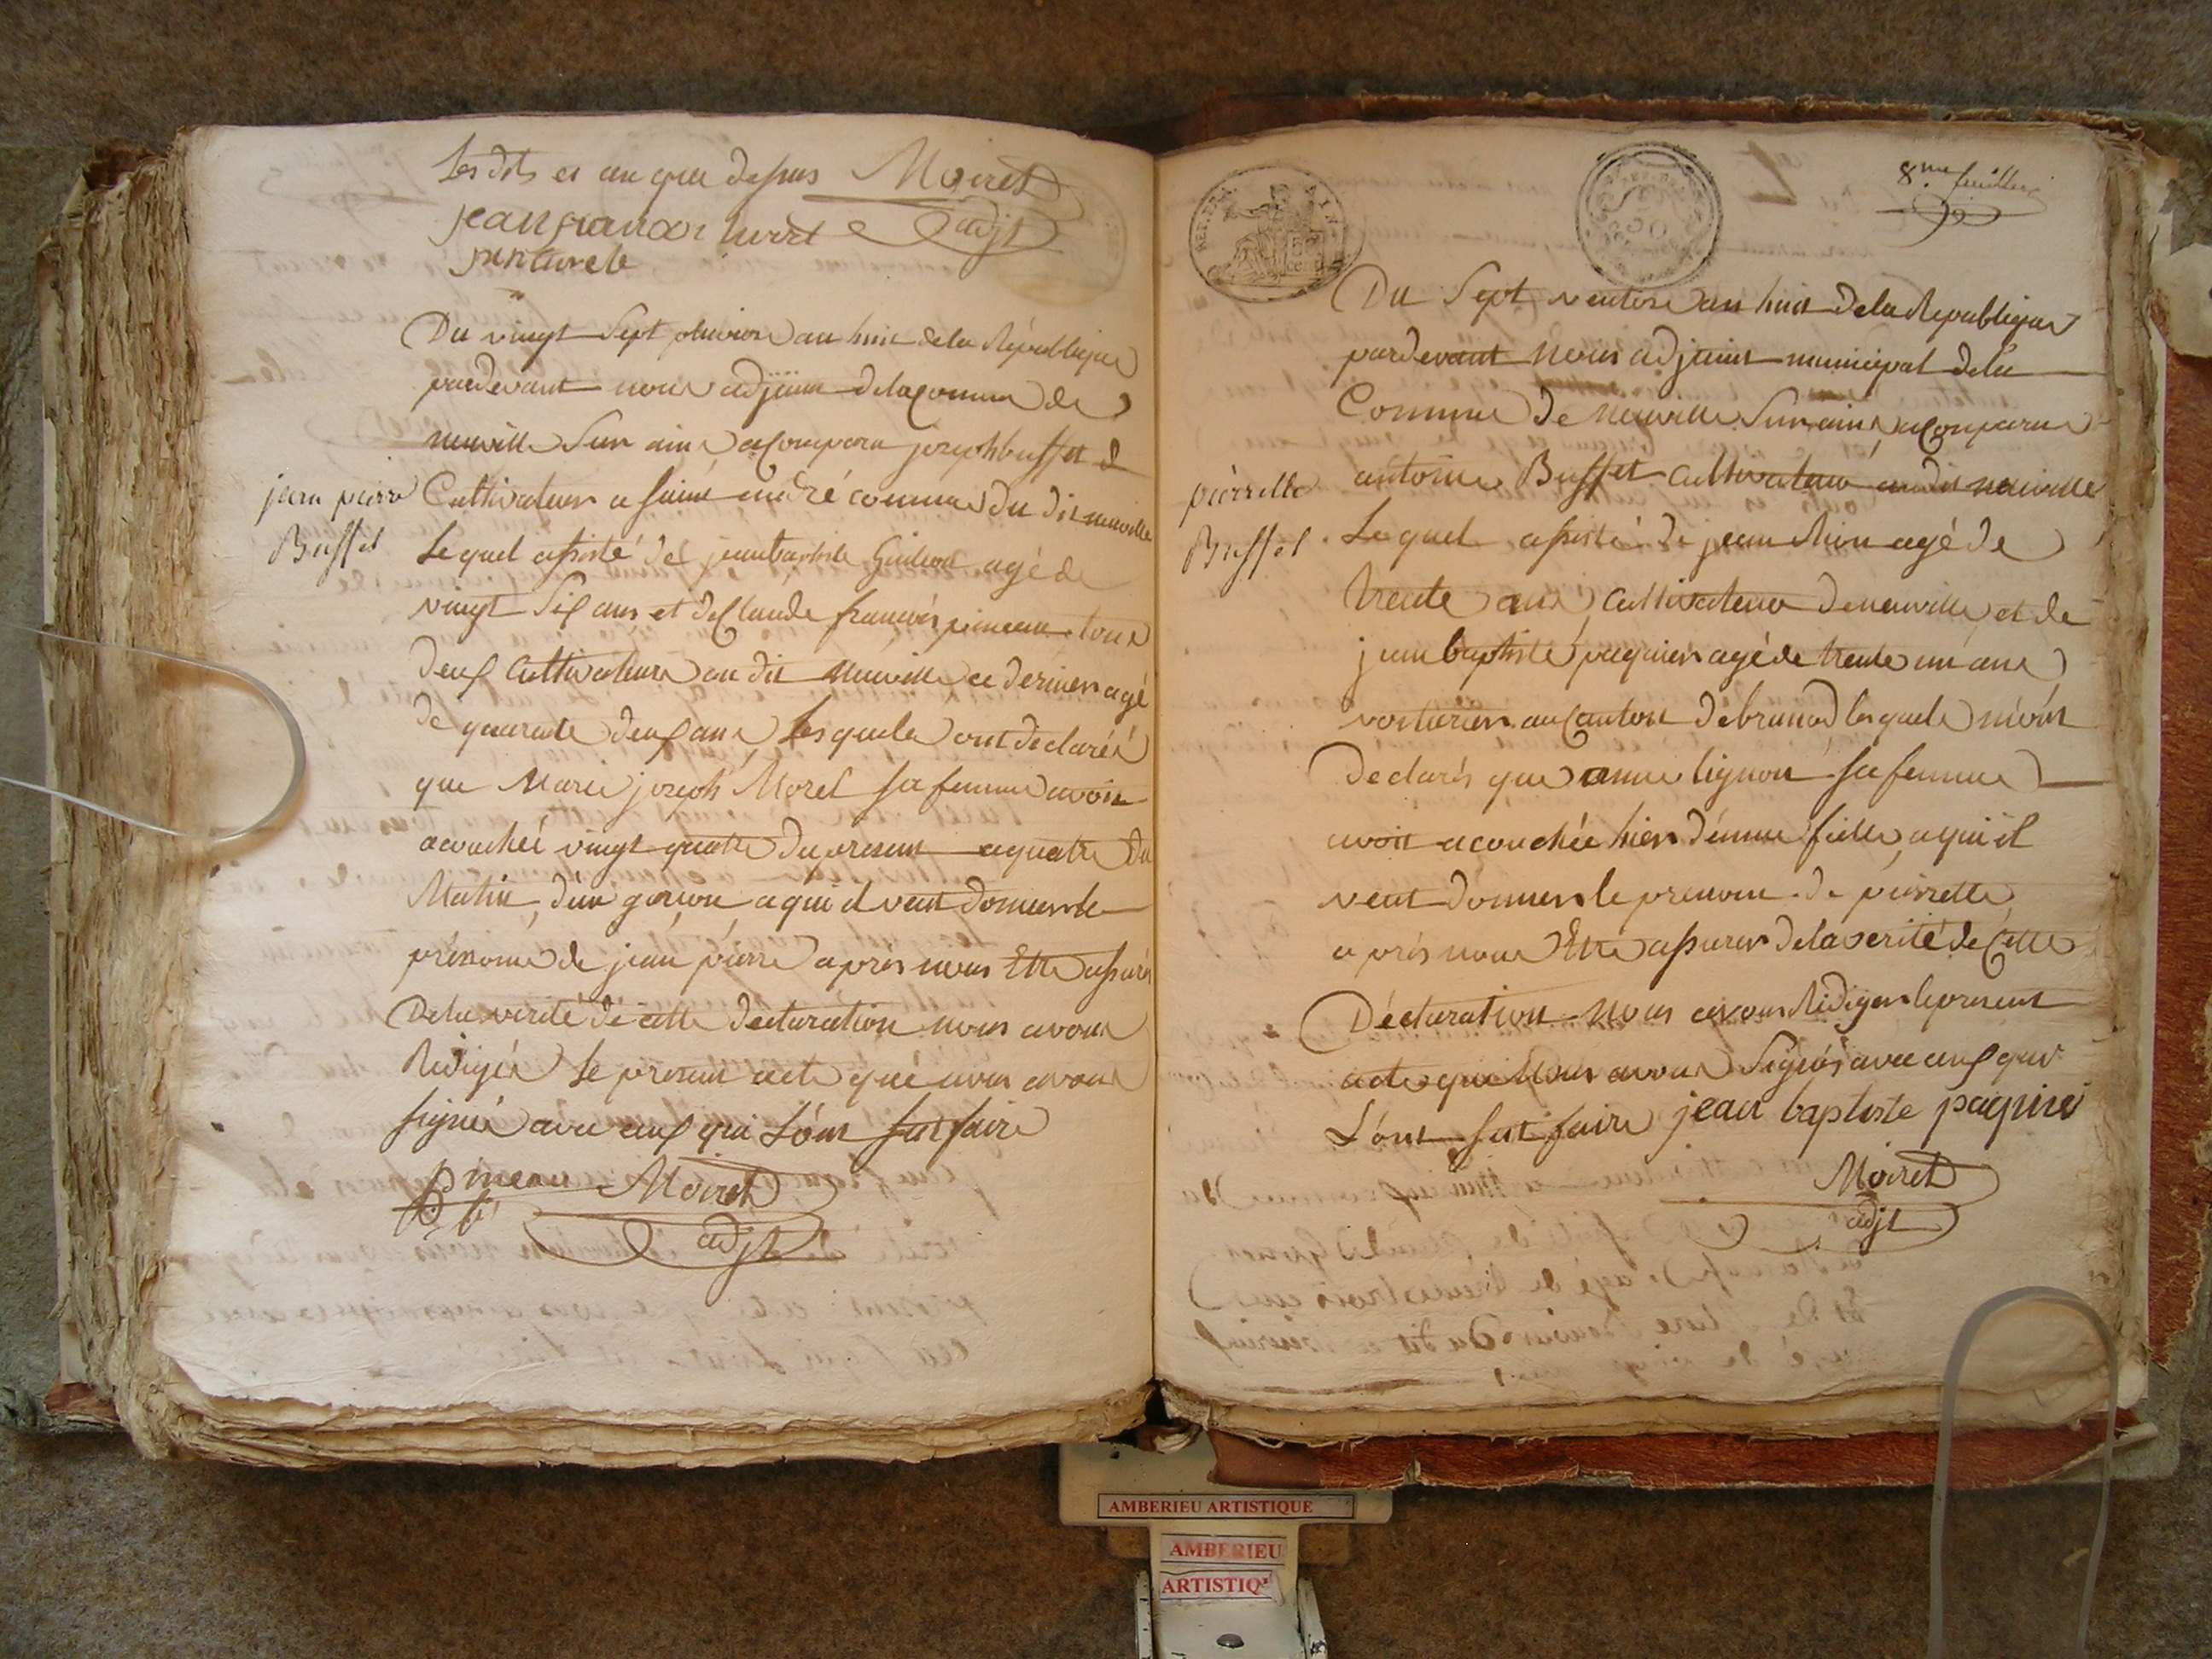 Les dits et an que dessus Moiret
jean francoi adjt
Du vingt Sept pluviose an huit de la République
pardevant nous adjoint de la commune de
neuville Sur ains a comparu joseph buffet
jean pierre
Buffet
Cultivateur a saint andré commune du dit neuville
Lequel assisté de jean baptiste agé de
vingt Six ans et de Claude francois pineau tous
deux Cultivateurs au dit neuville ce dernier agé
de quarante deux ans Lesquels ont déclarés
que Marie joseph Morel sa femme avoit
acouchée vingt quatre du present a quatre du
Matin, d'un garçon a qui il veut donner le
prénom de jean pierre apres nous Etre assurés
De la verité de cette declaration nous avons
Rédigés le present acte que nous avons
signés avec eux qui L'ont sut faire
pineau Moiret
adjt
8me feuillet
Du Sept ventose an huit de la Republique
pardevant nous adjoint municipal de la
Commune De Neuville Sur ains, a comparu
pierrette
Buffet
antoine Buffet cultivateur au dit neuville
Lequel assisté de jean agé de
trente ans, Cultivateur de neuville, et de
jean baptiste paquier agé de trente un ans
voiturier au Canton de brunod lesquels m'ont
Declarés que anne lignon sa femme
avoit acouchée hier d'enne fielle, a qui il
veut donner le prenom de pierrette
a prés nous Etre assurer de la verité de Cette
Déclaration nous avons Rediger le present
acte que Nous avons Signés avec eux qui
L'ont sut faire jean baptiste paquié
Moiret
adjt
AMBERIEU ARTISTIQUE
AMBERIEU
ARTISTIQ